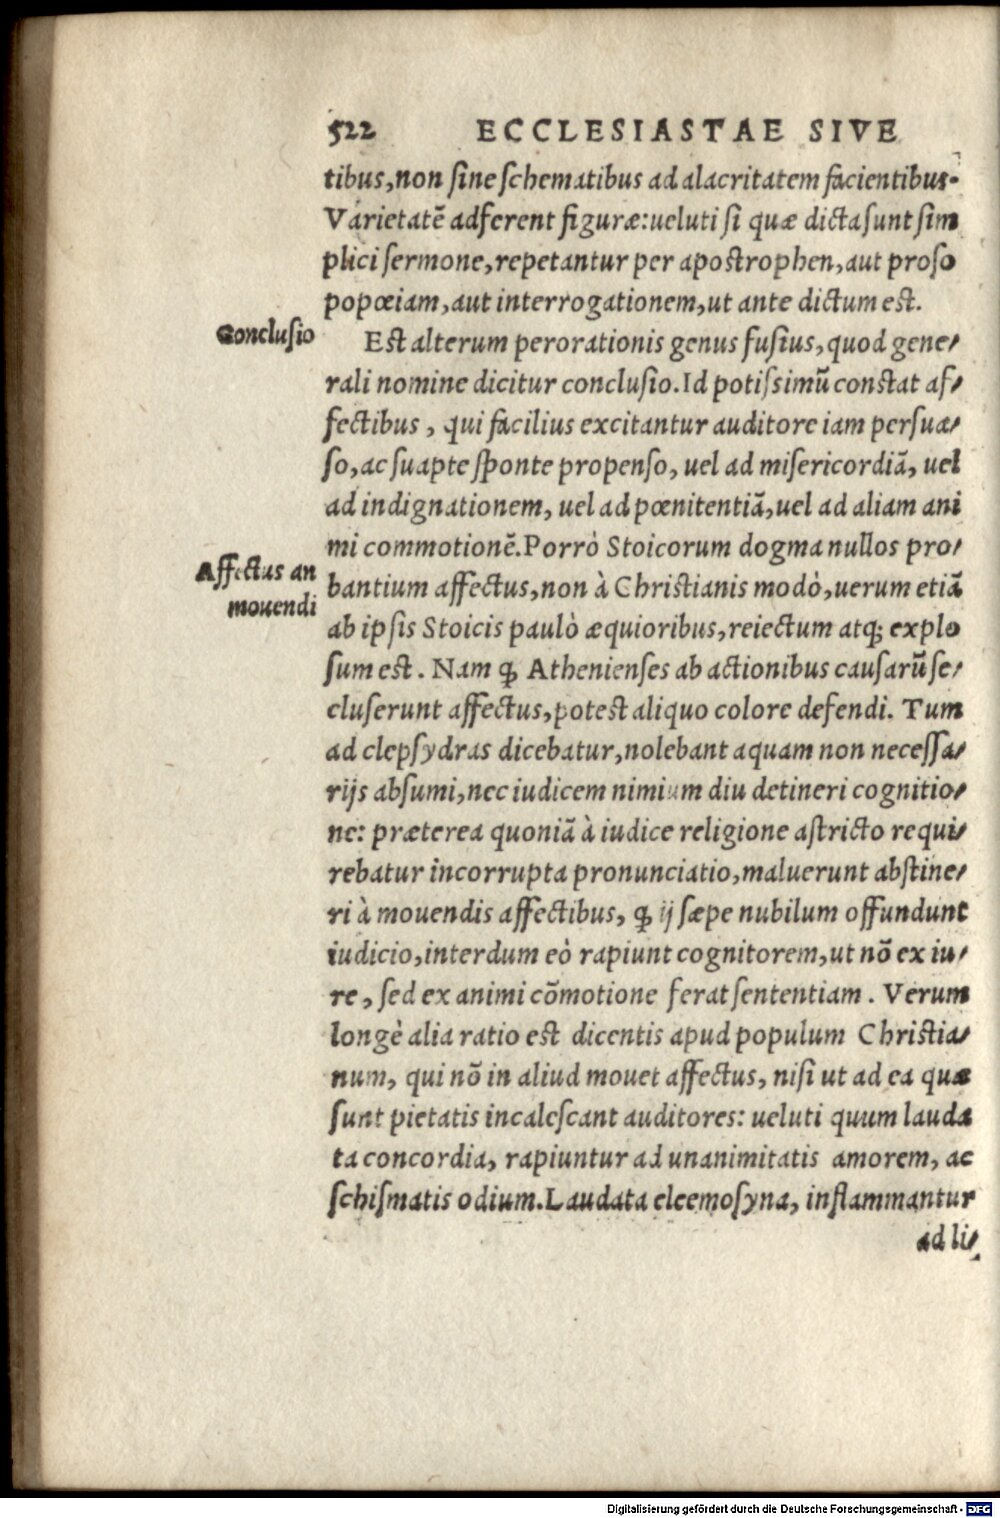 522 ECCLESIASTAE SIVE
tibus, non sine schematibus ad alacritatem facientibus.
Varietatẽ adferent figuræ: ueluti si quæ dicta sunt sim
plici sermone, repetantur per apostrophen, aut proso
popœiam, aut interrogationem, ut ante dictum est.
Conclusio
Est alterum perorationis genus fusius, quod gene/
rali nomine dicitur conclusio. Id potissimũ constat af/
fectibus, qui facilius excitantur auditore iam persua/
so, ac suapte sponte propenso, uel ad misericordiã, uel
ad indignationem, uel ad pœnitentiã, uel ad aliam ani
mi commotionẽ. Porrò Stoicorum dogma nullos pro/
Affectus an
mouendi
bantium affectus, non à Christianis modò, uerum etiã
ab ipsis Stoicis paulò æquioribus, reiectum atq; explo
sum est. Nam ꝙ Athenienses ab actionibus causarũ se/
cluserunt affectus, potest aliquo colore defendi. Tum
ad clepsydras dicebatur, nolebant aquam non necessa/
rijs absumi, nec iudicem nimium diu detineri cognitio/
ne: præterea quoniã à iudice religione astricto requi/
rebatur incorrupta pronunciatio, maluerunt abstine/
ri à mouendis affectibus, ꝙ ij sæpe nubilum offundunt
iudicio, interdum eò rapiunt cognitorem, ut nõ ex iu/
re, sed ex animi cõmotione ferat sententiam. Verum
longè alia ratio est dicentis apud populum Christia/
num, qui nõ in aliud mouet affectus, nisi ut ad ea quæ
sunt pietatis incalescant auditores: ueluti quum lauda
ta concordia, rapiuntur ad unanimitatis amorem, ac
schismatis odium. Laudata eleemosyna, inflammantur
ad li/
Digitalisierung gefördert durch die Deutsche Forschungsgemeinschaft - DFG